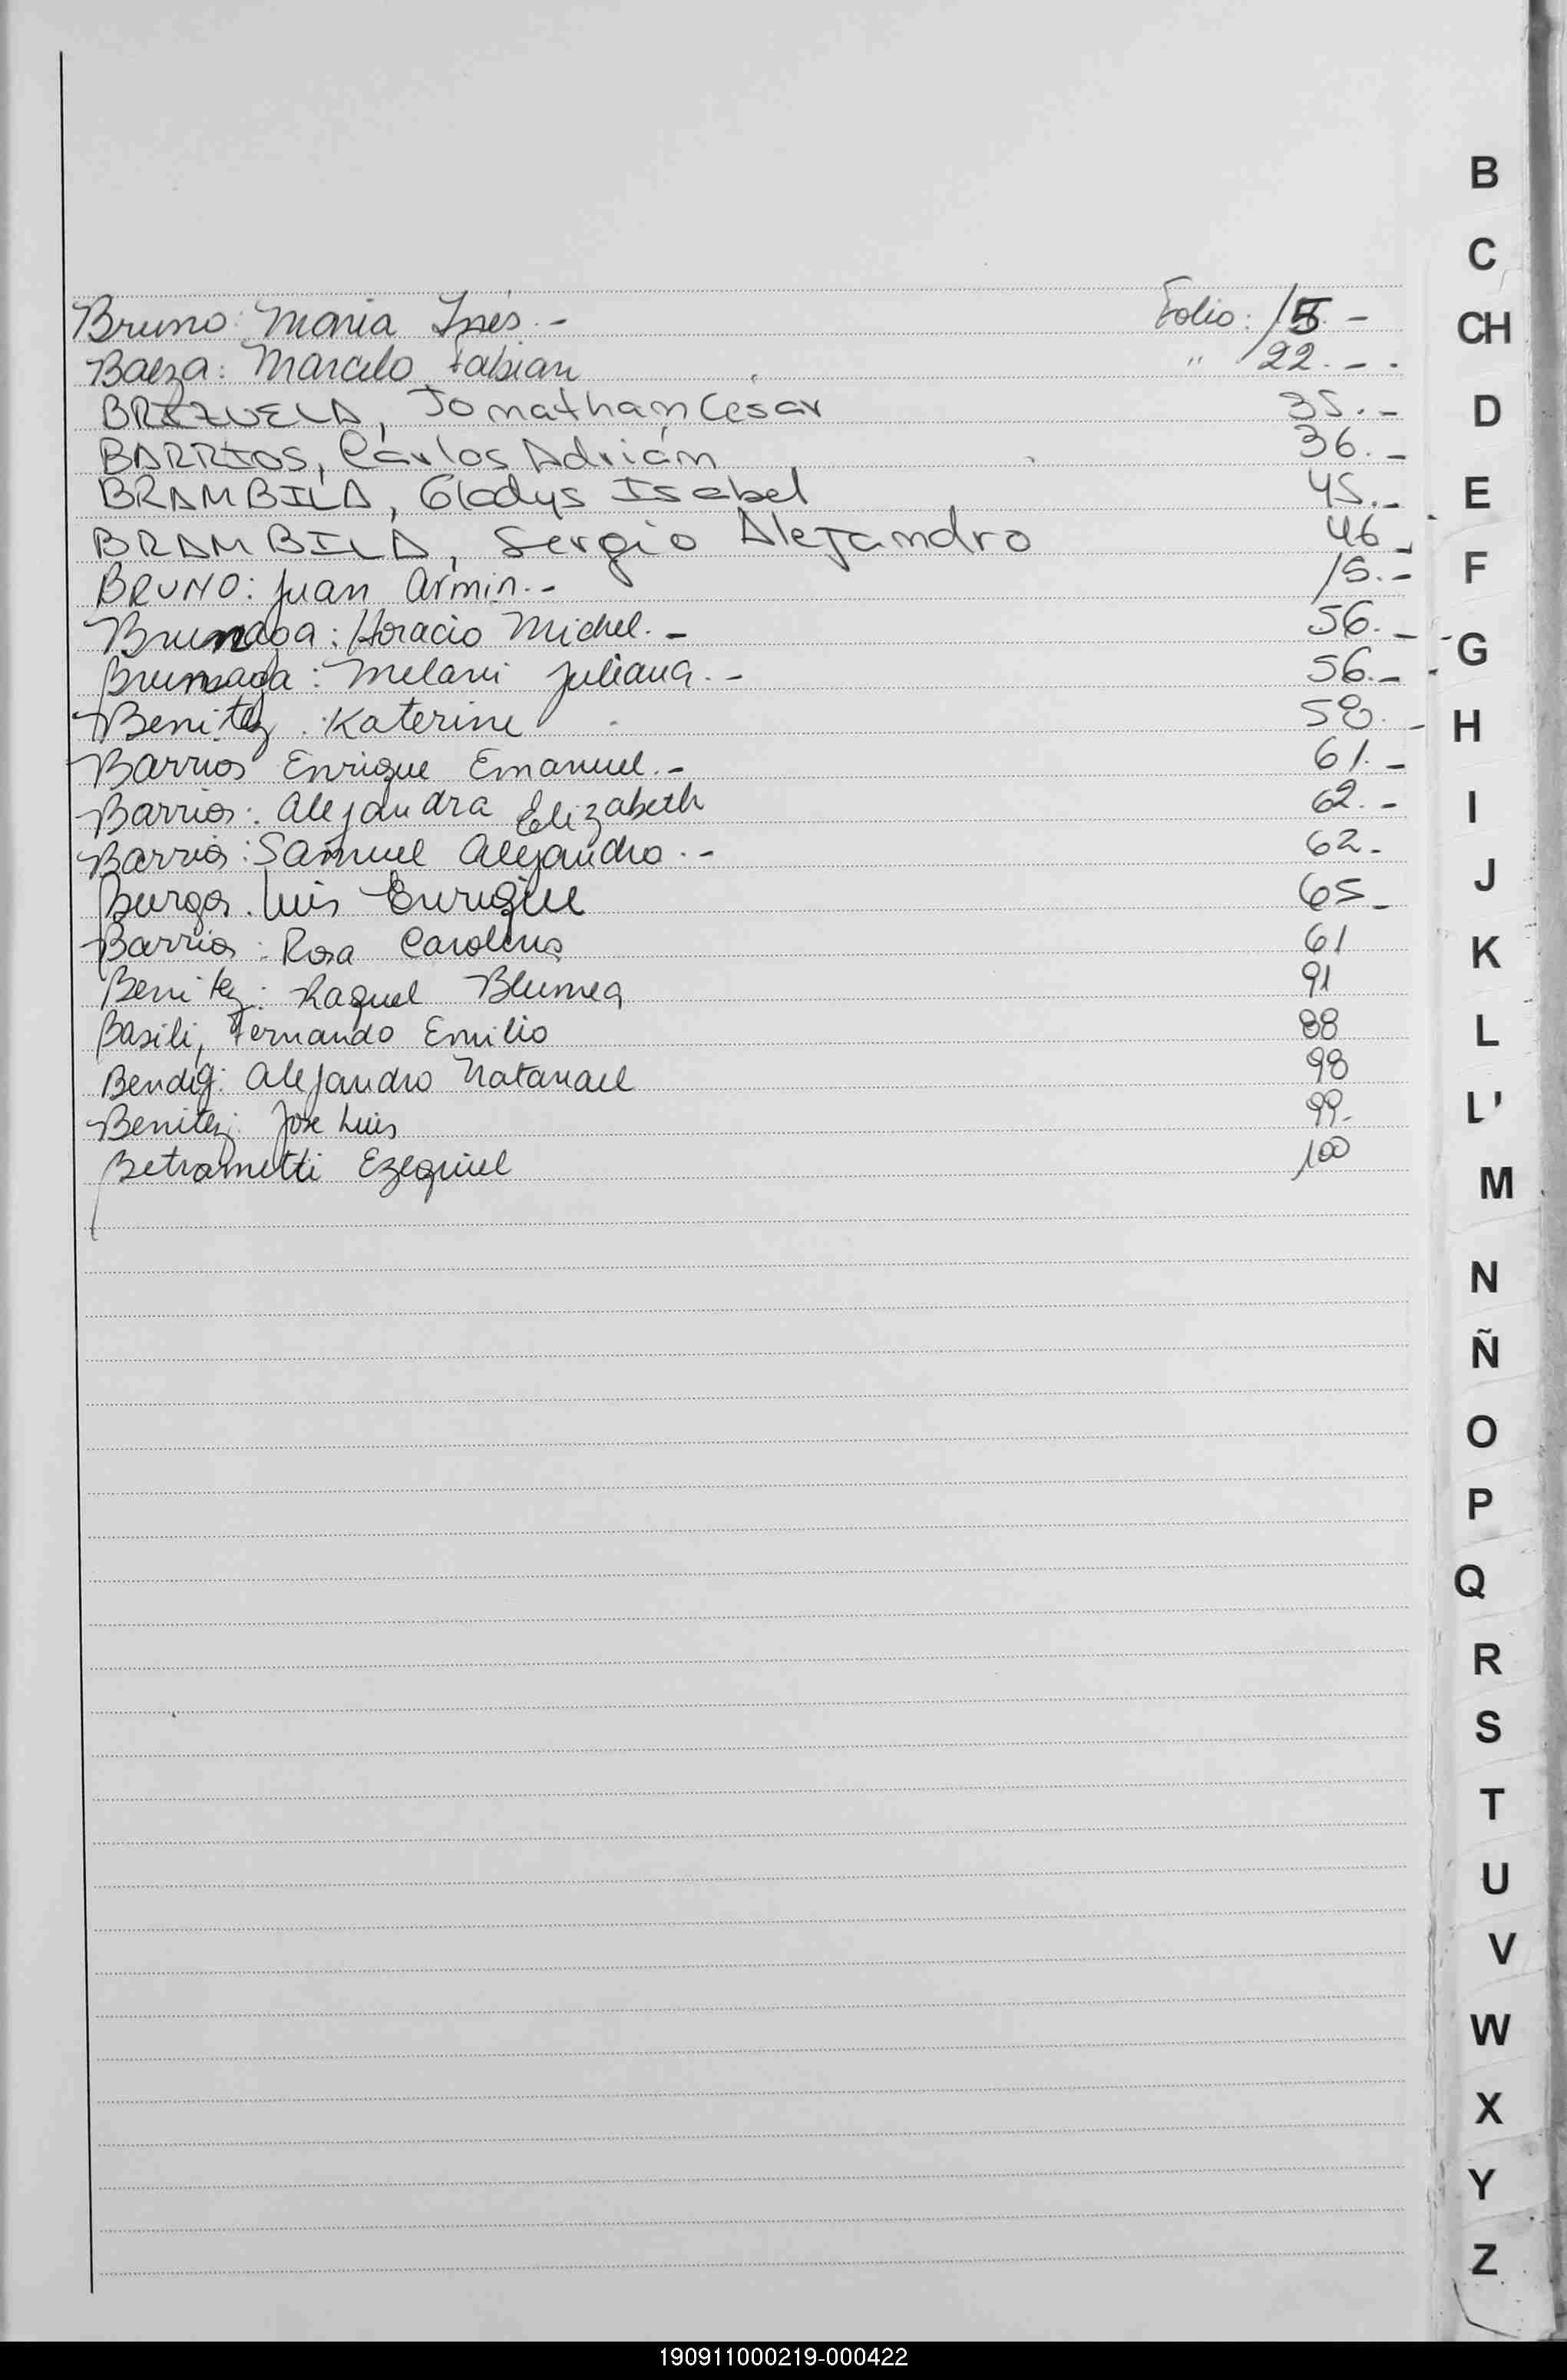 Bruno: Maria Inés.- Folio: 15-
Baeza: Marcelo Fabian " 22.-.
BRIZUELA, Jonathan Cesar 35.-
BARRIOS, Carlos Adrián 36.-
BRAMBILA, Gladys Isabel 45.-
BRAMBILA, Sergio Alejandro 46-
BRUNO: Juan Armin.- 15.-
Brunaga: Horacio Michel.- 56.-
Brunaga: Melani Juliana.- 56.-
Benitez. Katerine 58.-
Barrios Enrique Emanuel.- 61.-
Barrios: Alejandra Elizabeth 62.-
Barrios: Samuel Alejandro.- 62-
Burgos. Luis Enrique 65-
Barrios: Rosa Carolina 61
Benitez: Raquel Blumea 91
Basili, Fernando Emilio 88
Bendig: Alejandro Natanael 98
Benitez: Jose Luis 99-
Betrametti Ezequiel 100
B
C
CH
D
E
F
G
H
I
J
K
L
L'
M
N
Ñ
O
P
Q
R
S
T
U
V
W
X
Y
Z
190911000219-000422